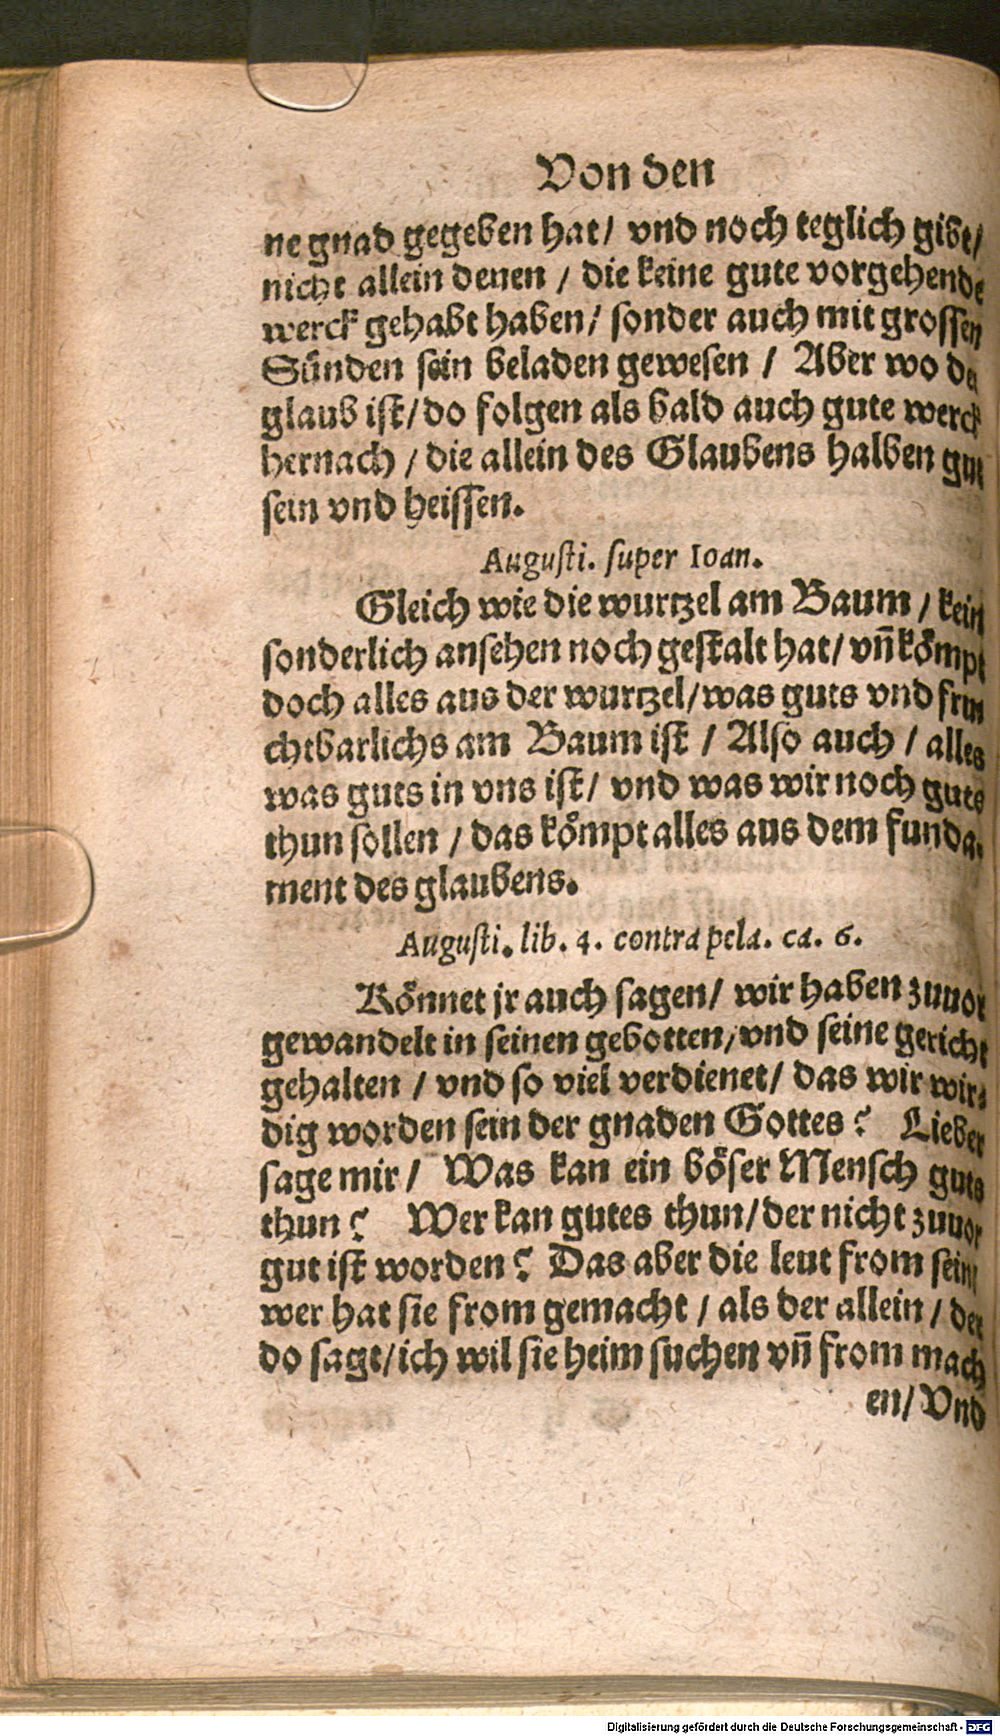 Von den
ne gnad gegeben hat/ vnd noch teglich gibt/
nicht allein denen / die keine gute vorgehende
werck gehabt haben/ sonder auch mit grossen
Sünden sein beladen gewesen / Aber wo der
glaub ist/ do folgen als bald auch gute werck
hernach / die allein des Glaubens halben gut
sein vnd heissen.
Augusti. super Ioan.
Gleich wie die wurtzel am Baum / kein
sonderlich ansehen noch gestalt hat/ vñ kömpt
doch alles aus der wurtzel/ was guts vnd fru
chtbarlichs am Baum ist / Also auch / alles
was guts in vns ist/ vnd was wir noch guts
thun sollen / das kömpt alles aus dem funda-
ment des glaubens.
Augusti. lib. 4. contra pela. ca. 6.
Könnet jr auch sagen/ wir haben zuuor
gewandelt in seinen gebotten/ vnd seine gericht
gehalten / vnd so viel verdienet/ das wir wir-
dig worden sein der gnaden Gottes? Lieber
sage mir/ Was kan ein böser Mensch guts
thun? Wer kan gutes thun/ der nicht zuuor
gut ist worden? Das aber die leut from sein/
wer hat sie from gemacht / als der allein / der
do sagt/ ich wil sie heim suchen vñ from mach
en/ Vnd
Digitalisierung gefördert durch die Deutsche Forschungsgemeinschaft - DFG